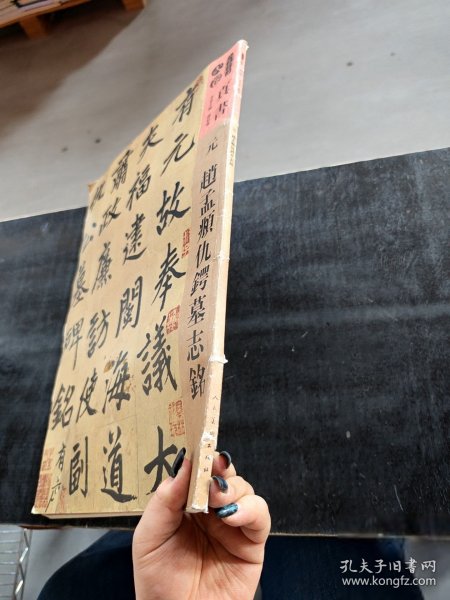 有元故奉議大
夫福建閩海道
肅政廉訪使副
仇公墓碑銘有
元 趙孟頫仇鍔墓志銘
孔夫子旧书网
www.kongfz.com